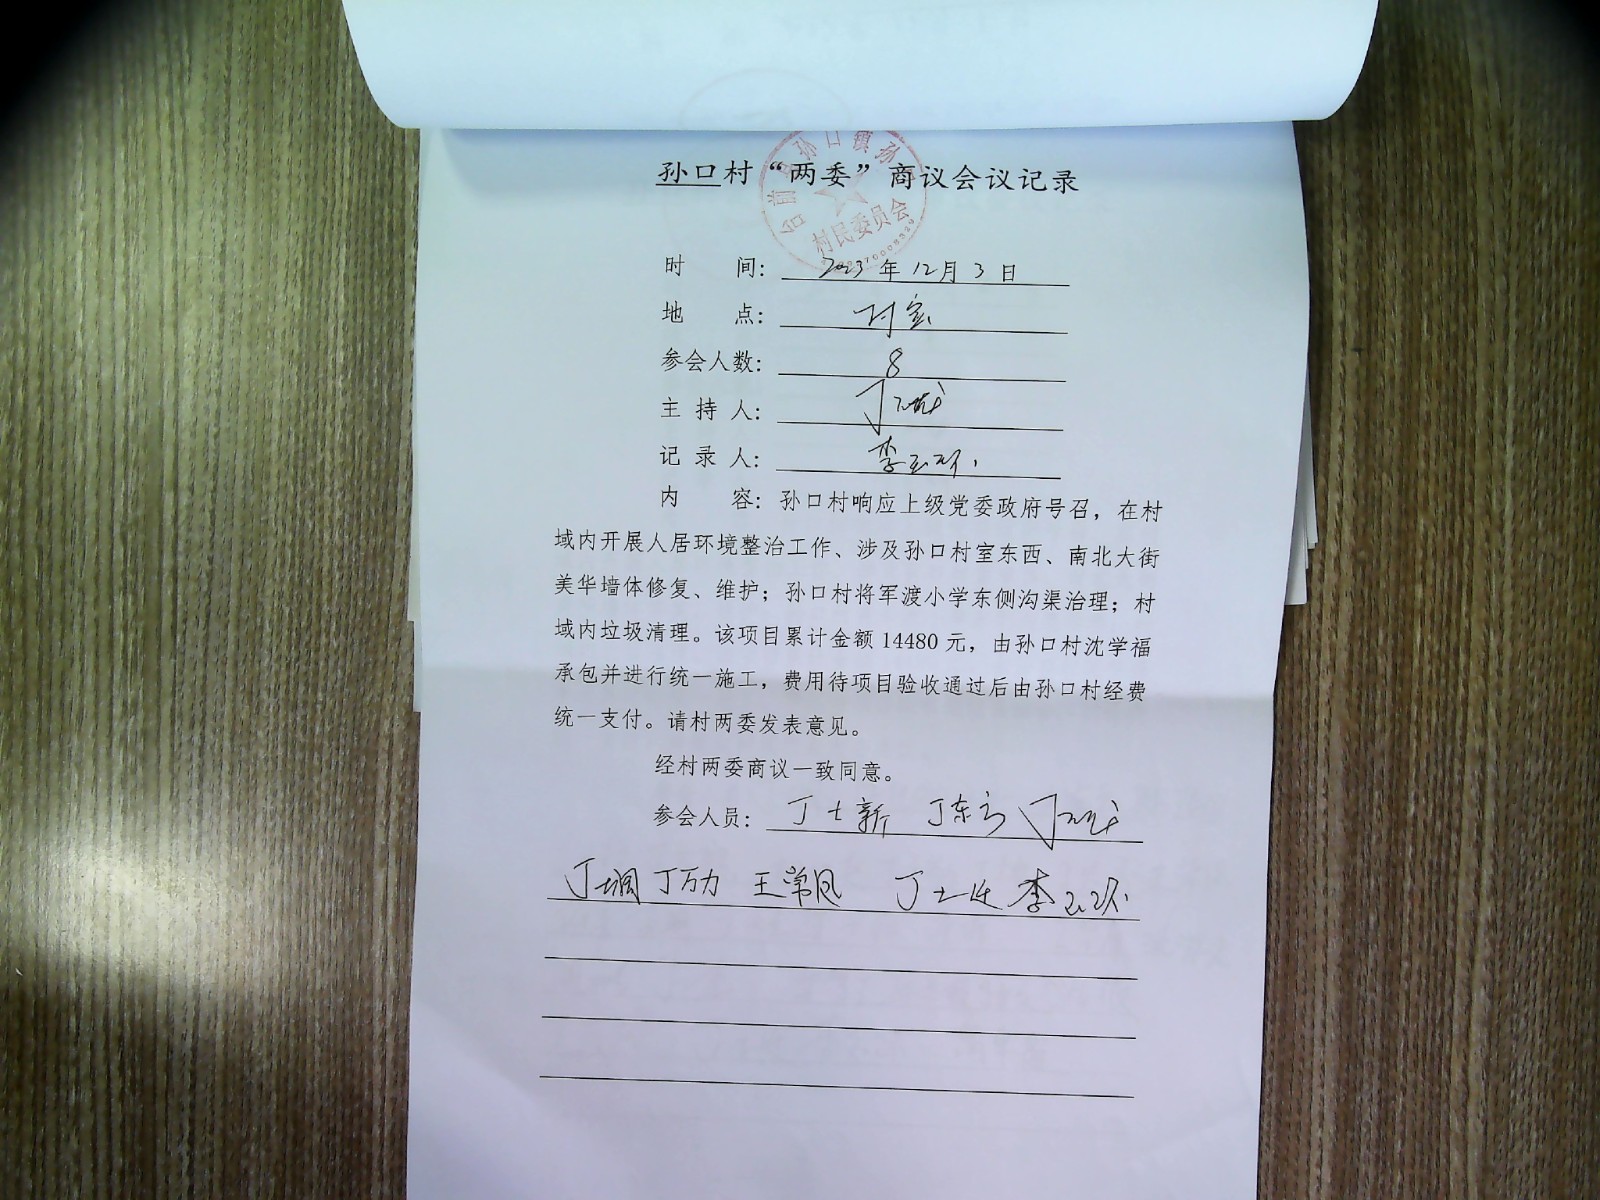 孙口村“两委”商议会议记录
村民委员会
时 间: 2023年12月3日
地 点: 村室
参会人数: 8
主 持 人: 丁
记 录 人: 李玉
内 容: 孙口村响应上级党委政府号召，在村
域内开展人居环境整治工作、涉及孙口村室东西、南北大街
美华墙体修复、维护；孙口村将军渡小学东侧沟渠治理；村
域内垃圾清理。该项目累计金额14480元，由孙口村沈学福
承包并进行统一施工，费用待项目验收通过后由孙口村经费
统一支付。请村两委发表意见。
经村两委商议一致同意。
参会人员: 丁士新 丁东 丁
丁 丁万力 王常凤 丁士 李玉